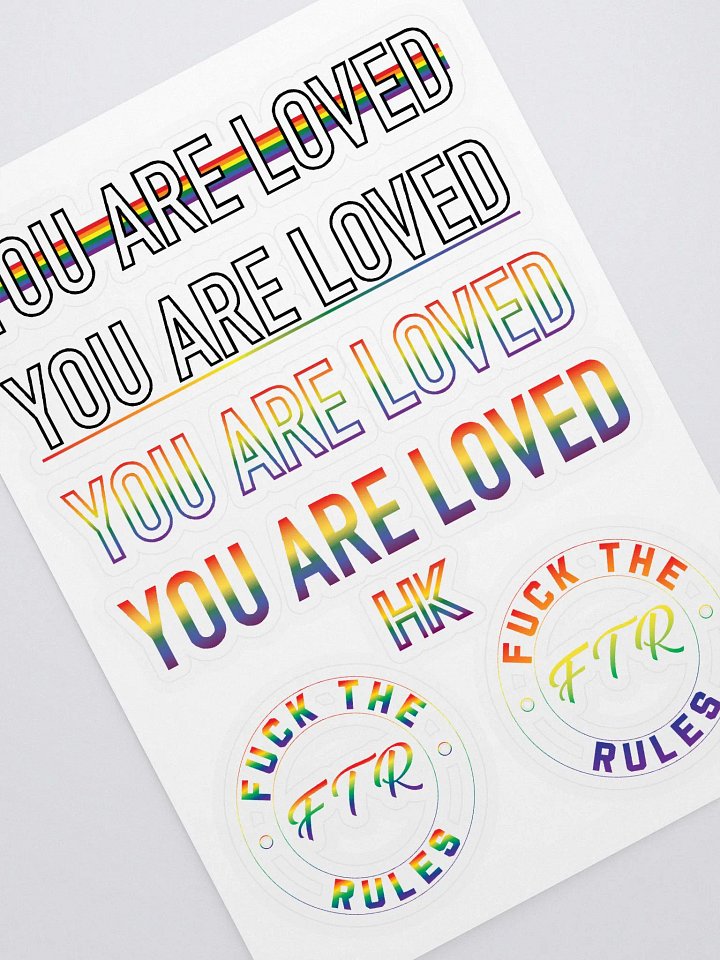 YOU ARE LOVED
YOU ARE LOVED
YOU ARE LOVED
YOU ARE LOVED
HK
FUCK THE
FTR
RULES
FUCK THE
FTR
RULES